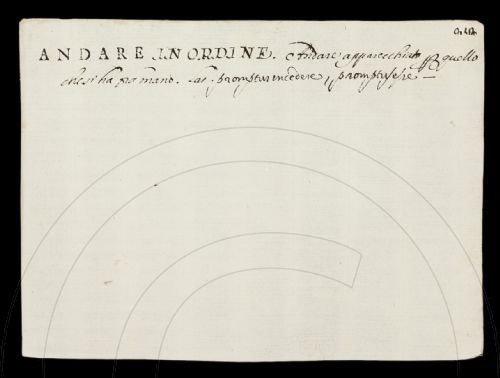 ANDARE IN ORDINE. Andare apparecchiato quello
che si ha fra mano. Lat. promptũ incedere, promptũ esse